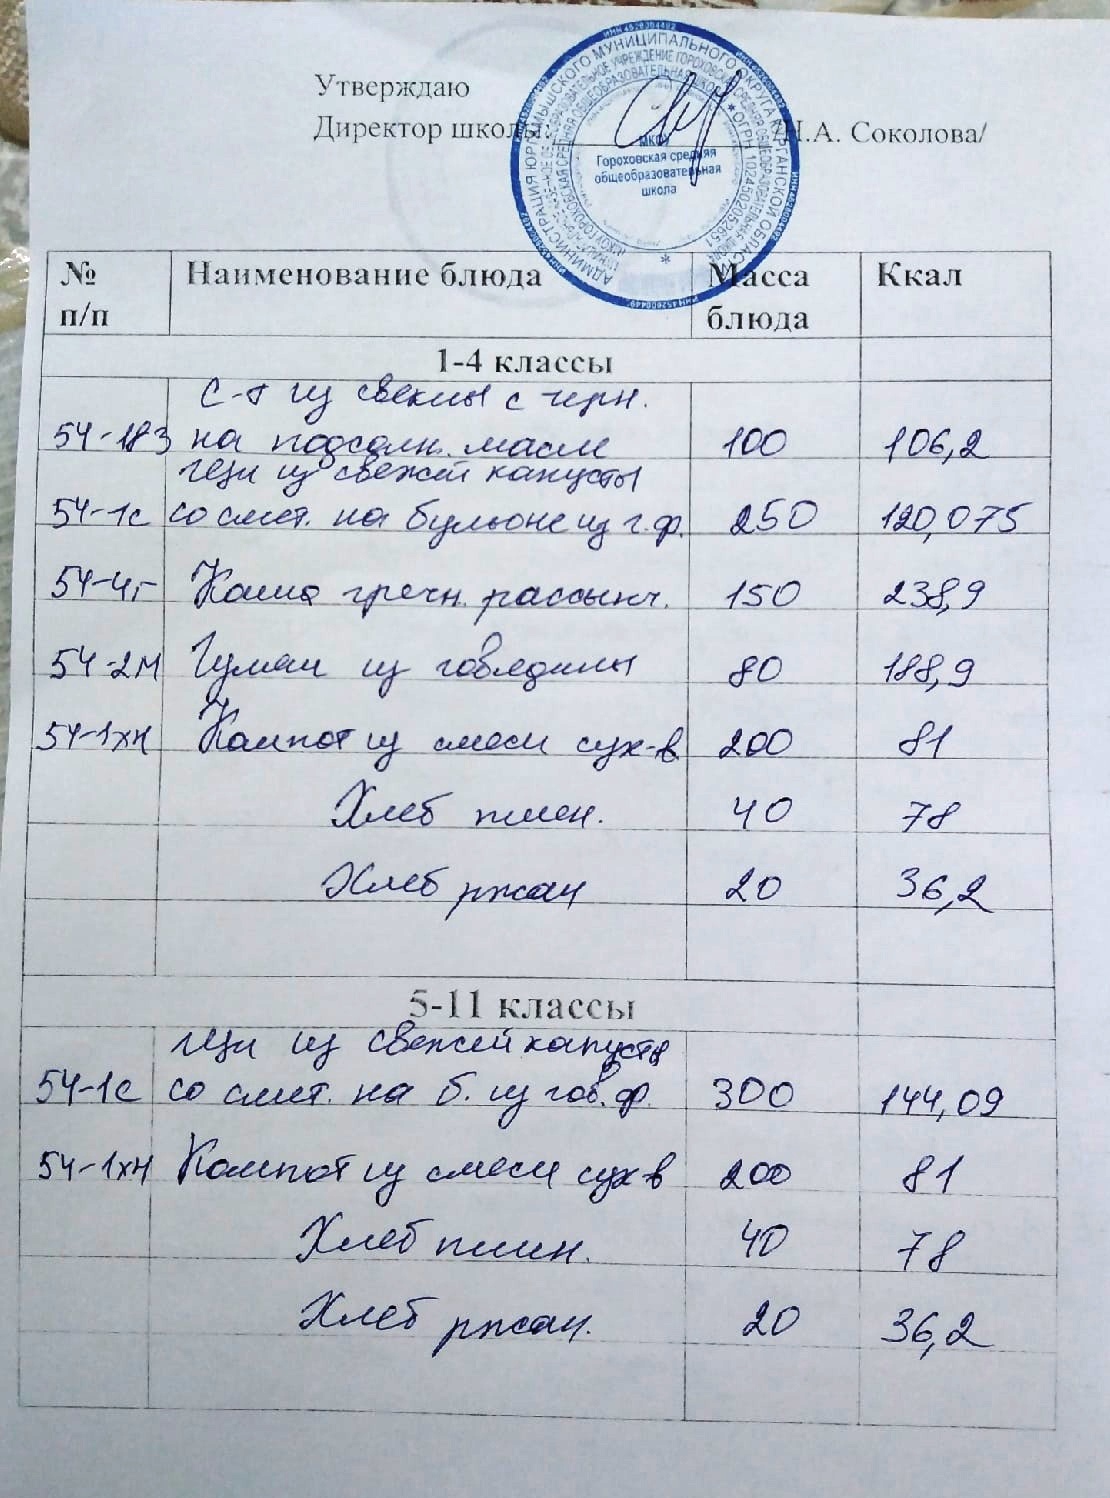 Утверждаю
Директор школы: /Н.А. Соколова/
МКОУ
Гороховская средняя
общеобразовательная
школа
№ п/п Наименование блюда Масса блюда Ккал
1-4 классы
с-т из свеклы с черн.
54-18з на подсолн. масле 100 106,2
щи из свежей капусты
54-1с со смет. на бульоне из г.ф. 250 120,075
54-4г Каша гречн. рассыпч. 150 238,9
54-2м Гуляш из говядины 80 188,9
54-1хн Компот из смеси сух-в 200 81
Хлеб пшен. 40 78
Хлеб ржан 20 36,2
5-11 классы
щи из свежей капусты
54-1с со смет. на б. из гов. ф. 300 144,09
54-1хн Компот из смеси сух-в 200 81
Хлеб пшен. 40 78
Хлеб ржан. 20 36,2